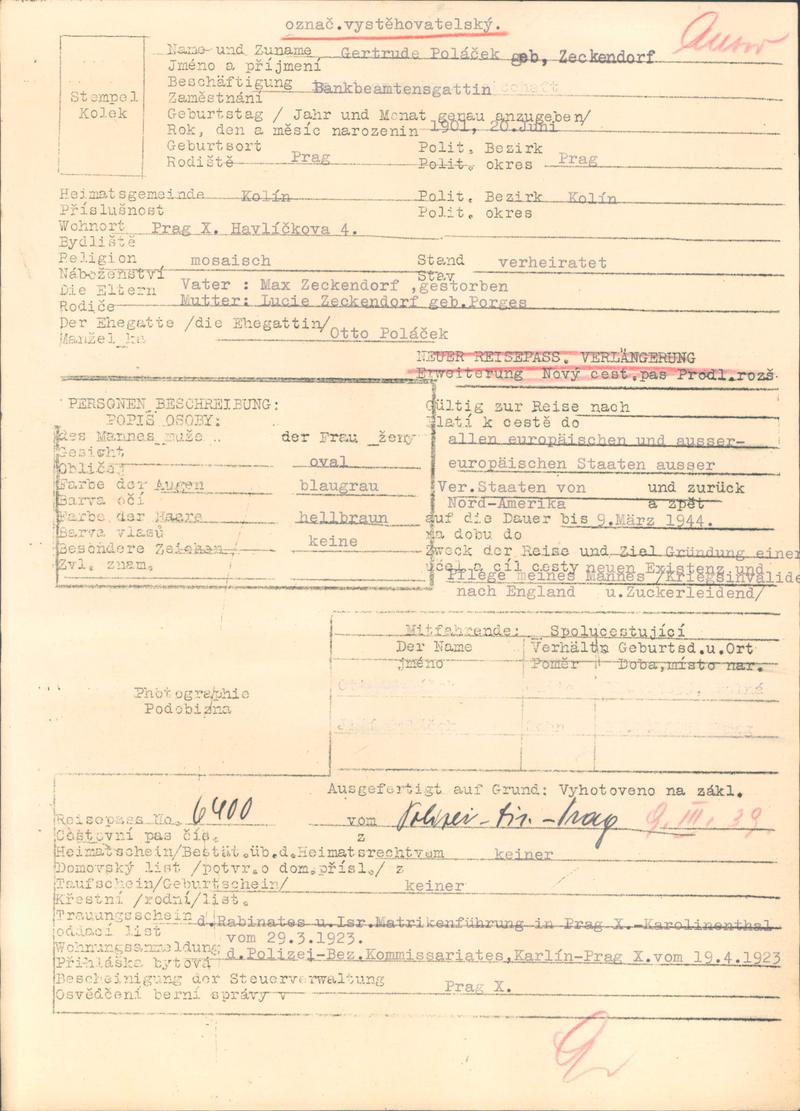 označ.vystěhovatelský.
Name und Zuname Gertrude Poláček geb, Zeckendorf
Jméno a příjmení
Stempel
Kolek
Beschäftigung Bankbeamtensgattin
Zaměstnání
Geburtstag / Jahr und Monat genau anzugeben/
Rok, den a měsíc narozenin 1901, 20.Juni
Geburtsort Prag Polit. Bezirk Prag
Rodiště Polit. okres
Heimatsgemeinde Kolín Polit. Bezirk Kolín
Příslušnost Polit. okres
Wohnort Prag X. Havlíčkova 4.
Bydliště
Religion mosaisch Stand verheiratet
Náboženství Stav
Die Eltern Vater : Max Zeckendorf ,gestorben
Rodiče Mutter: Lucie Zeckendorf geb.Porges
Der Ehegatte /die Ehegattin/ Otto Poláček
Manžel ka
NEUER REISEPASS. VERLÄNGERUNG
Erweiterung Nový cest.pas Prodl.rozš.
PERSONEN BESCHREIBUNG:
POPIS OSOBY:
des Mannes muže der Frau ženy
Gesicht oval
Obličej
Farbe der Augen blaugrau
Barva očí
Farbe der Haare hellbraun
Barva vlasů
Besondere Zeichen keine
Zvl. znam.
Gültig zur Reise nach
Platí k cestě do
allen europäischen und ausser-
europäischen Staaten ausser
Ver.Staaten von und zurück
Nord-Amerika a zpět
auf die Dauer bis 9.März 1944.
na dobu do
Zweck der Reise und Ziel Gründung einer
účel a cíl cesty neuen Existenz und
Pflege meines Mannes /Kriegsinvalide
nach England u.Zuckerleidend/
Mitfahrende: Spolucestující
Der Name Verhältn Geburtsd.u.Ort
jméno Poměr Doba,místo nar.
Photographie
Podobizna
Ausgefertigt auf Grund: Vyhotoveno na zákl.
Reisepass No. 6400 vom Polizei-Dir.-Prag 9.III.39
Cestovní pas čís. z
Heimatschein/Bestät.üb.d.Heimatsrechtvom keiner
Domovský list /potvr.o dom.přísl./ z
Taufschein/Geburtschein/ keiner
Křestní /rodní/list.
Trauungsschein d.Rabinates u.Isr.Matrikenführung in Prag X.-Karolinenthal
oddací list vom 29.3.1923.
Wohnungsanmeldung d.Polizei-Bez.Kommissariates,Karlín-Prag X.vom 19.4.1923
Přihláška bytová
Bescheinigung der Steuerverwaltung
Osvědčení berní správy v Prag X.